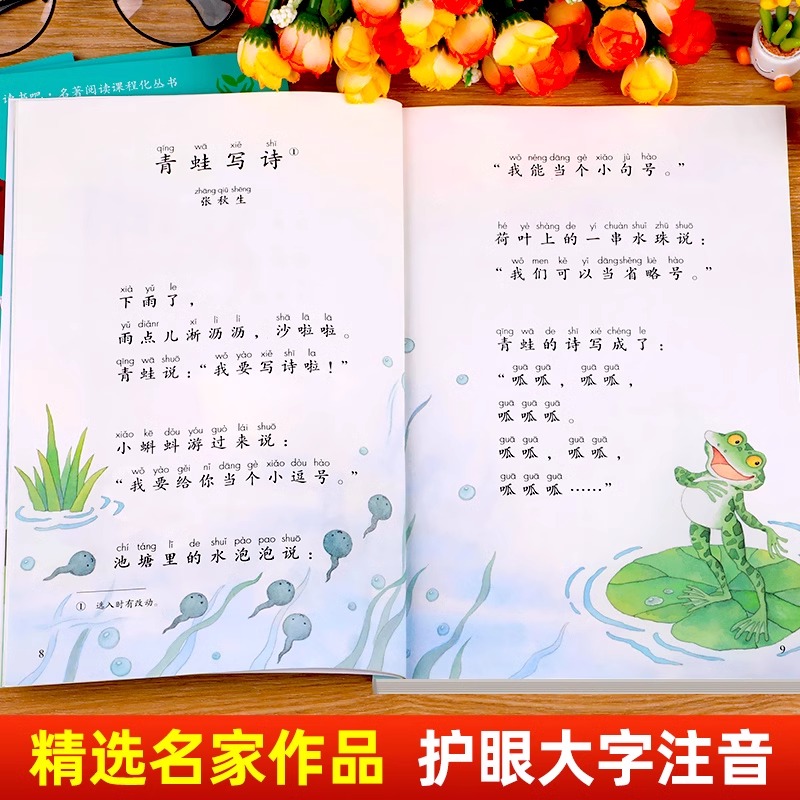 读书吧·名著阅读课程化丛书
qīng wā xiě shī
青蛙写诗①
zhāng qiū shēng
张秋生
xià yǔ le
下雨了，
yǔ diǎnr xī lì lì shā lā lā
雨点儿淅沥沥，沙啦啦。
qīng wā shuō wǒ yào xiě shī la
青蛙说：“我要写诗啦！”
xiǎo kē dǒu yóu guò lái shuō
小蝌蚪游过来说：
wǒ yào gěi nǐ dāng gè xiǎo dòu hào
“我要给你当个小逗号。”
chí táng lǐ de shuǐ pào pao shuō
池塘里的水泡泡说：
① 选入时有改动。
8
wǒ néng dāng gè xiǎo jù hào
“我能当个小句号。”
hé yè shàng de yí chuàn shuǐ zhū shuō
荷叶上的一串水珠说：
wǒ men kě yǐ dāng shěng lüè hào
“我们可以当省略号。”
qīng wā de shī xiě chéng le
青蛙的诗写成了：
guā guā guā guā
“呱呱，呱呱，
guā guā guā
呱呱呱。
guā guā guā guā
呱呱，呱呱，
guā guā guā
呱呱呱……”
9
精选名家作品 护眼大字注音